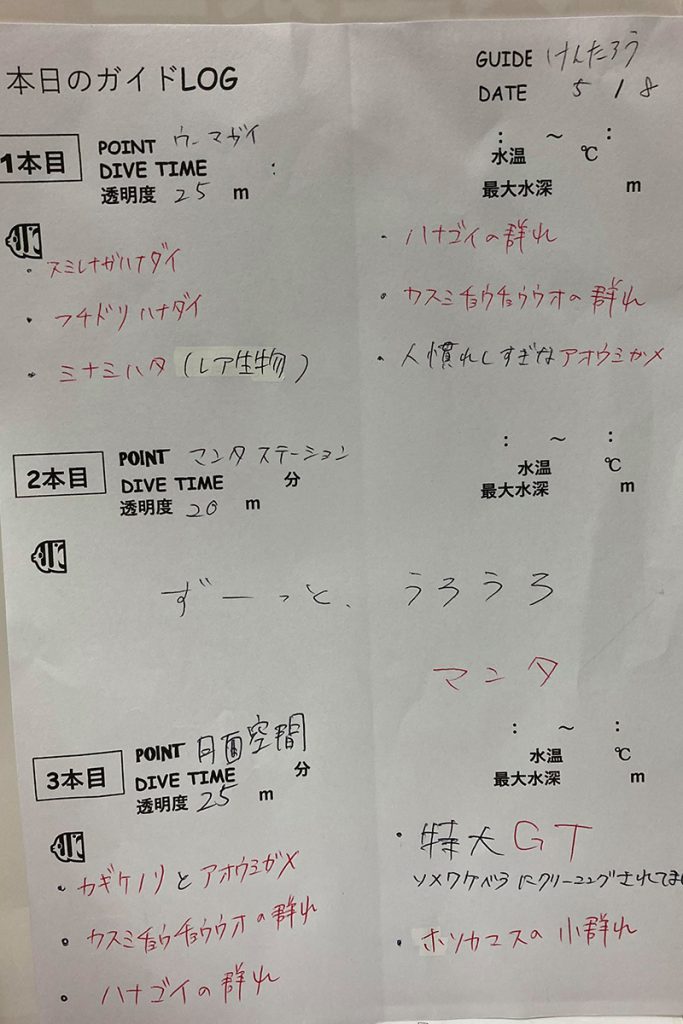 本日のガイドLOG
GUIDE けんたろう
DATE 5 / 8
1本目
POINT ウーマガイ
DIVE TIME :
透明度 25 m
: ～ :
水温 ℃
最大水深 m
・スミレナガハナダイ
・フチドリハナダイ
・ミナミハタ (レア生物)
・ハナゴイの群れ
・カスミチョウチョウウオの群れ
・人慣れしすぎなアオウミガメ
2本目
POINT マンタステーション
DIVE TIME 分
透明度 20 m
: ～ :
水温 ℃
最大水深 m
ずーっと、うろうろ
マンタ
3本目
POINT 月面空間
DIVE TIME 分
透明度 25 m
: ～ :
水温 ℃
最大水深 m
・カギケノリとアオウミガメ
・カスミチョウチョウウオの群れ
・ハナゴイの群れ
・特大GT
ソメワケベラにクリーニングされてま
・ホソカマスの小群れ